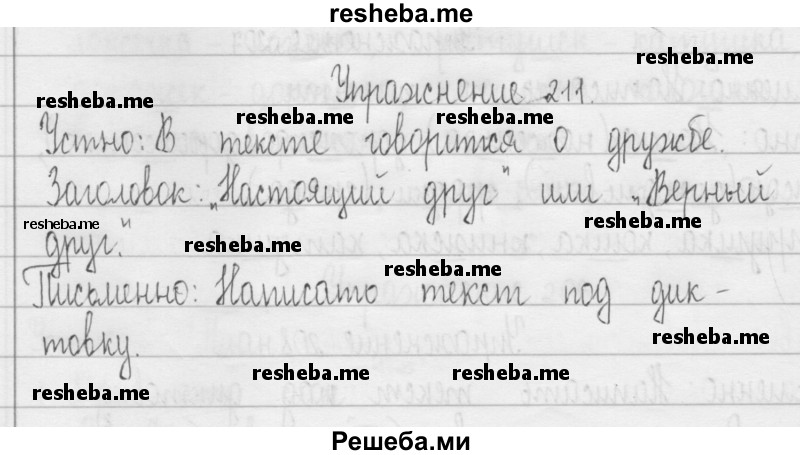 resheba.me
resheba.me
Упражнение 211.
resheba.me
resheba.me
resheba.me
Устно: В тексте говорится о дружбе.
Заголовок: „Настоящий друг" или „Верный
resheba.me
resheba.me
resheba.me
друг."
resheba.me
Письменно: Написато текст под дик-
resheba.me
товку.
resheba.me
resheba.me
resheba.me
Решеба.ми